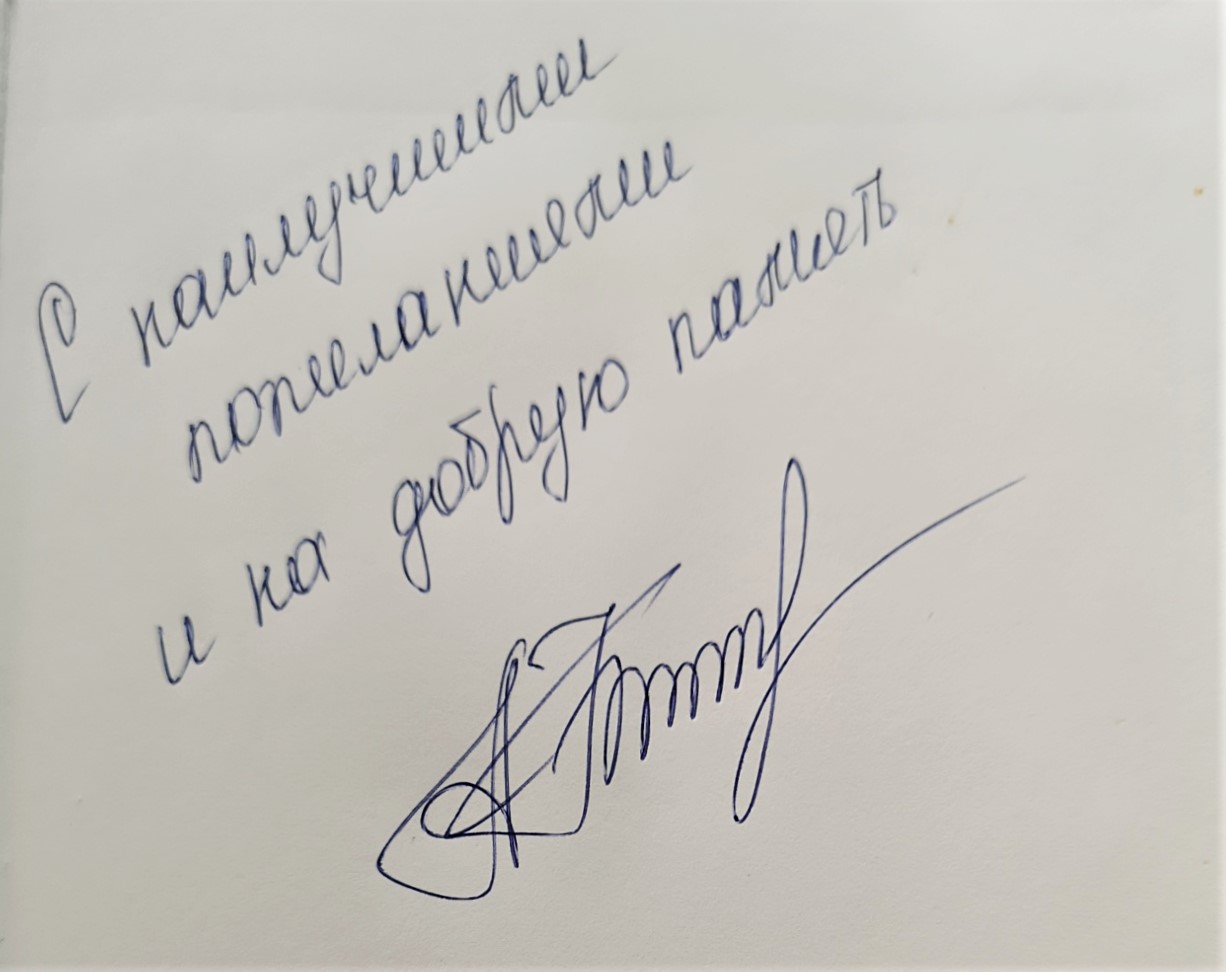 С наилучшими
пожеланиями
и на добрую память